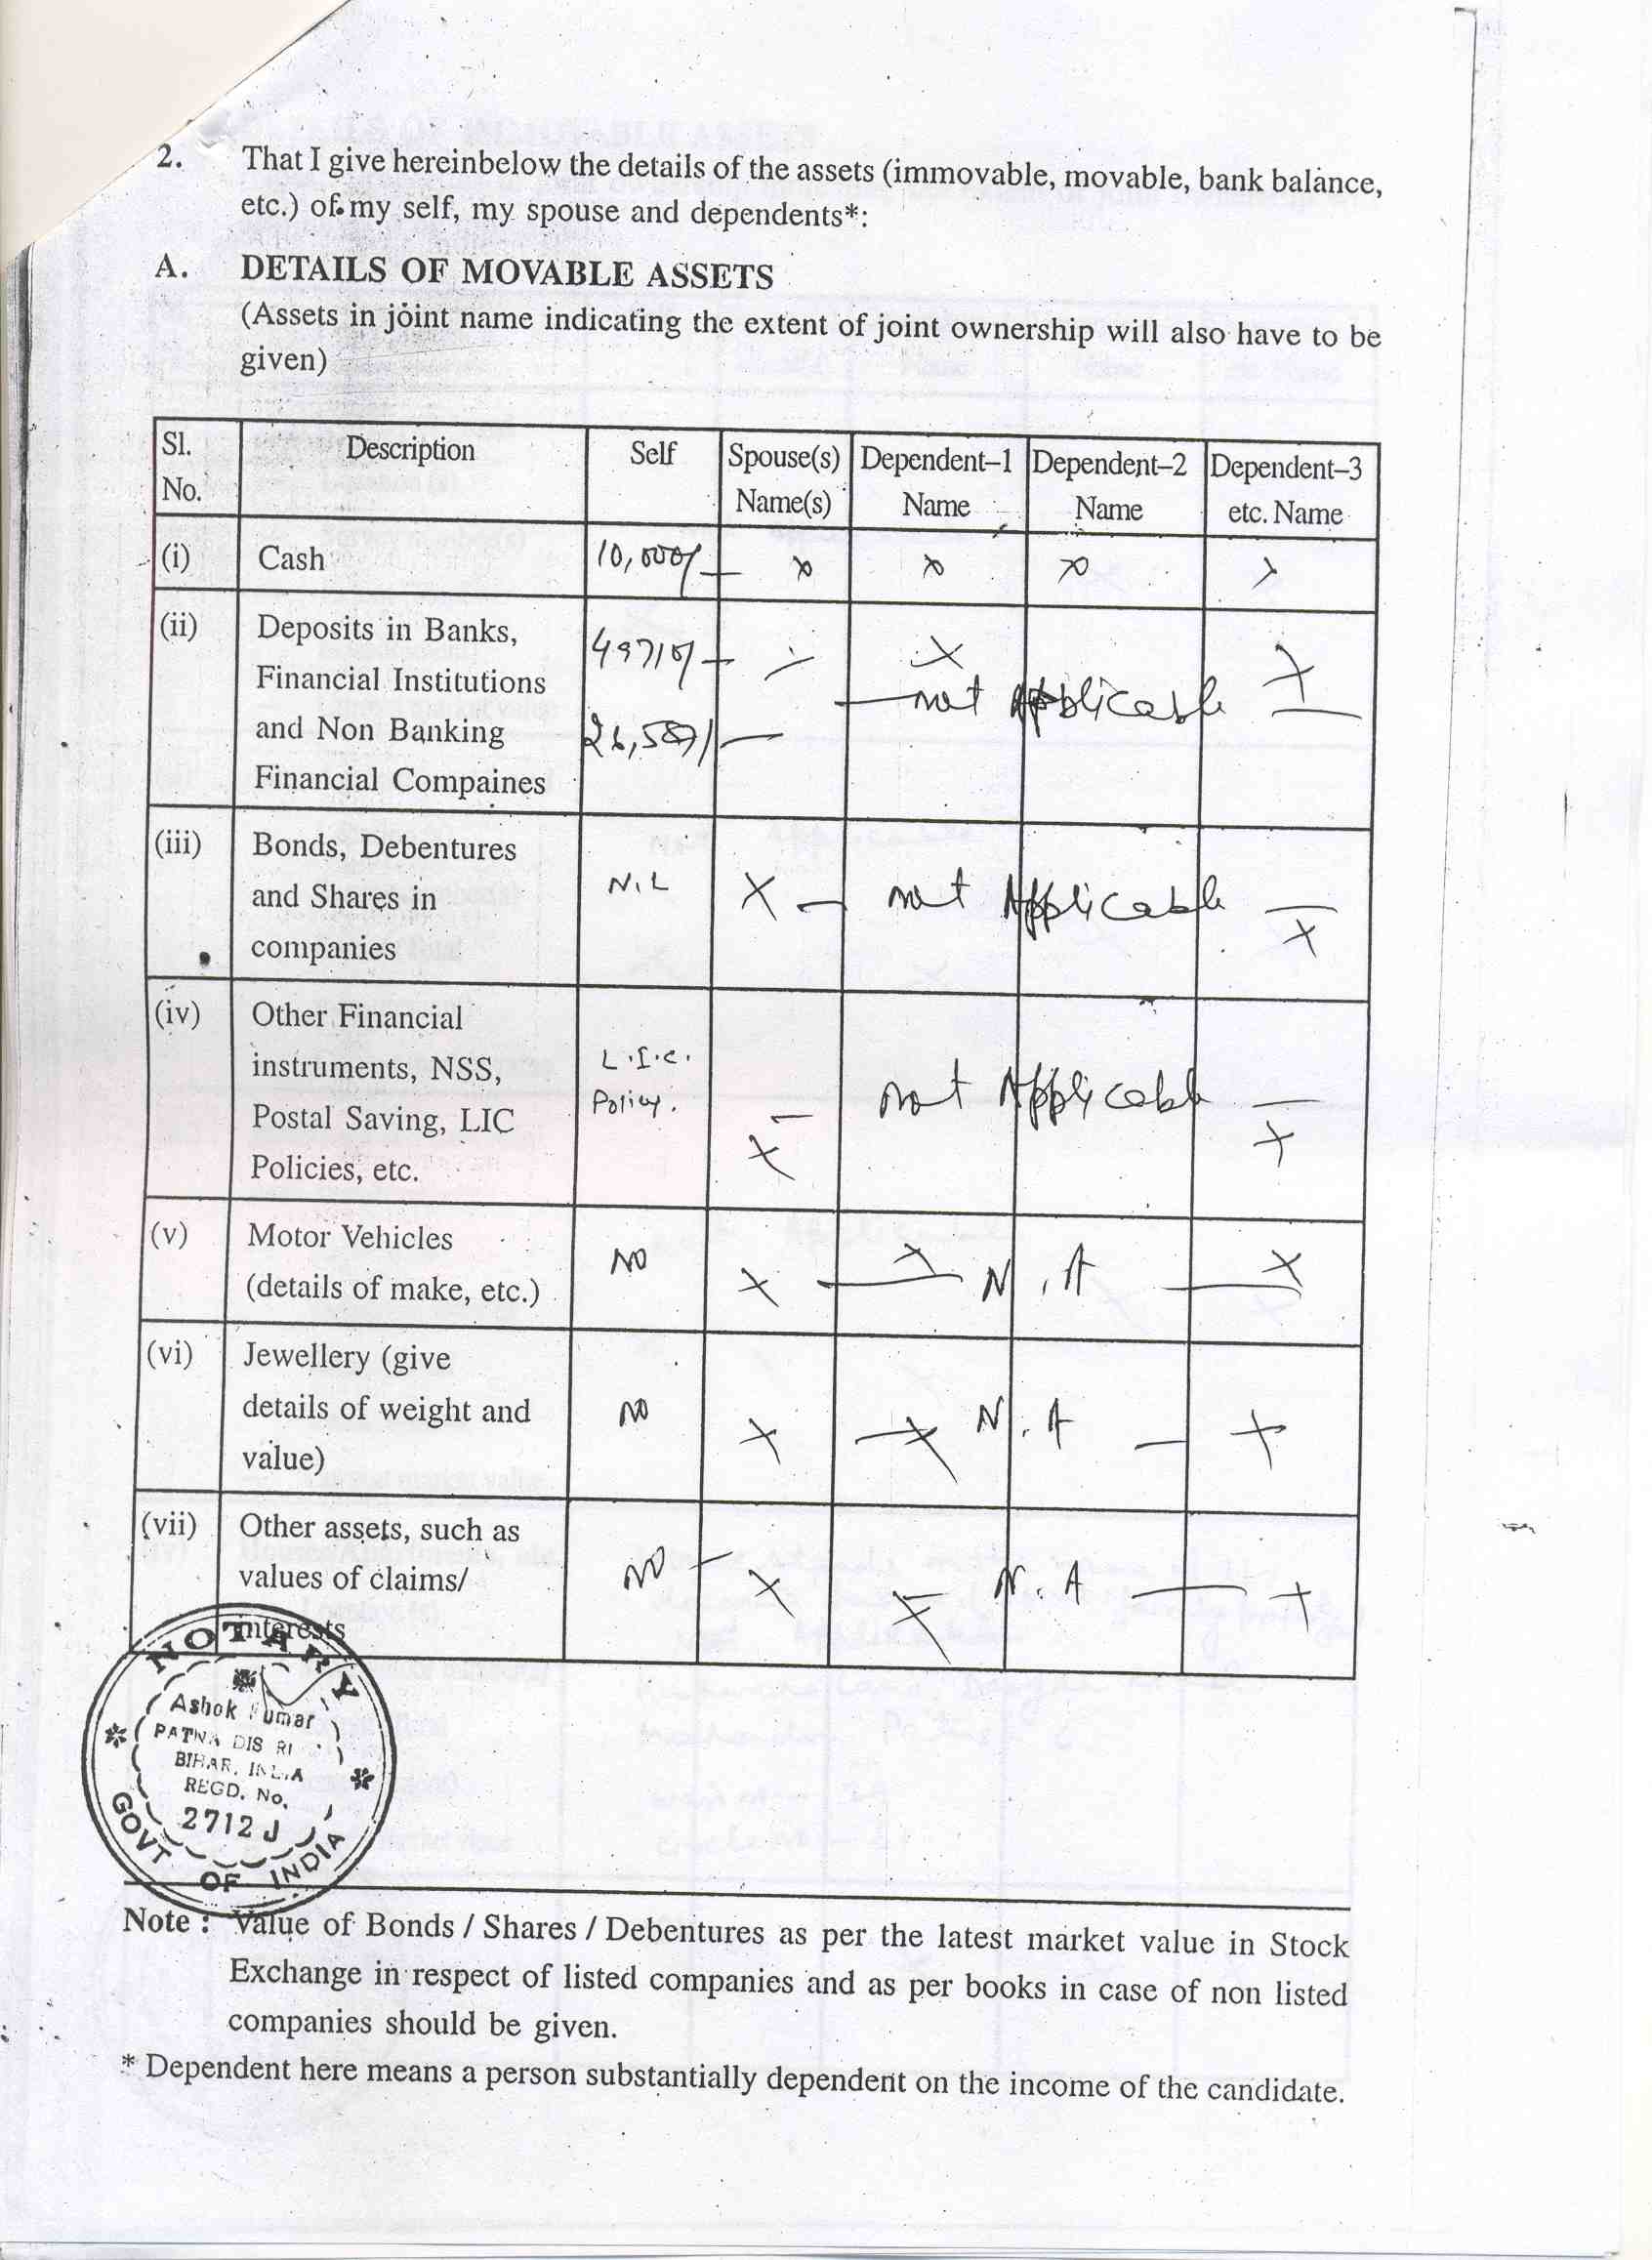 2. That I give hereinbelow the details of the assets (immovable, movable, bank balance,
etc.) of my self, my spouse and dependents*:
A. DETAILS OF MOVABLE ASSETS
(Assets in joint name indicating the extent of joint ownership will also have to be
given)
Sl. No. Description Self Spouse(s) Name(s) Dependent–1 Name Dependent–2 Name Dependent–3 etc. Name
(i) Cash 10,000/- x x x x
(ii) Deposits in Banks,
Financial Institutions
and Non Banking
Financial Compaines
x — not Applicable x —
(iii) Bonds, Debentures
and Shares in
companies
NIL X — not Applicable — x
(iv) Other Financial
instruments, NSS,
Postal Saving, LIC
Policies, etc.
L.I.C.
Policy.
— x not Applicable — x
(v) Motor Vehicles
(details of make, etc.)
NO x — x N.A — x
(vi) Jewellery (give
details of weight and
value)
NO x — x N.A — x
(vii) Other assets, such as
values of claims/
interests
NO — x — x N.A — x
NOTARY
Ashok Kumar
PATNA DIS RI
BIHAR, INDIA
REGD. No.
2712 J
GOVT OF INDIA
Note : Value of Bonds / Shares / Debentures as per the latest market value in Stock
Exchange in respect of listed companies and as per books in case of non listed
companies should be given.
* Dependent here means a person substantially dependent on the income of the candidate.